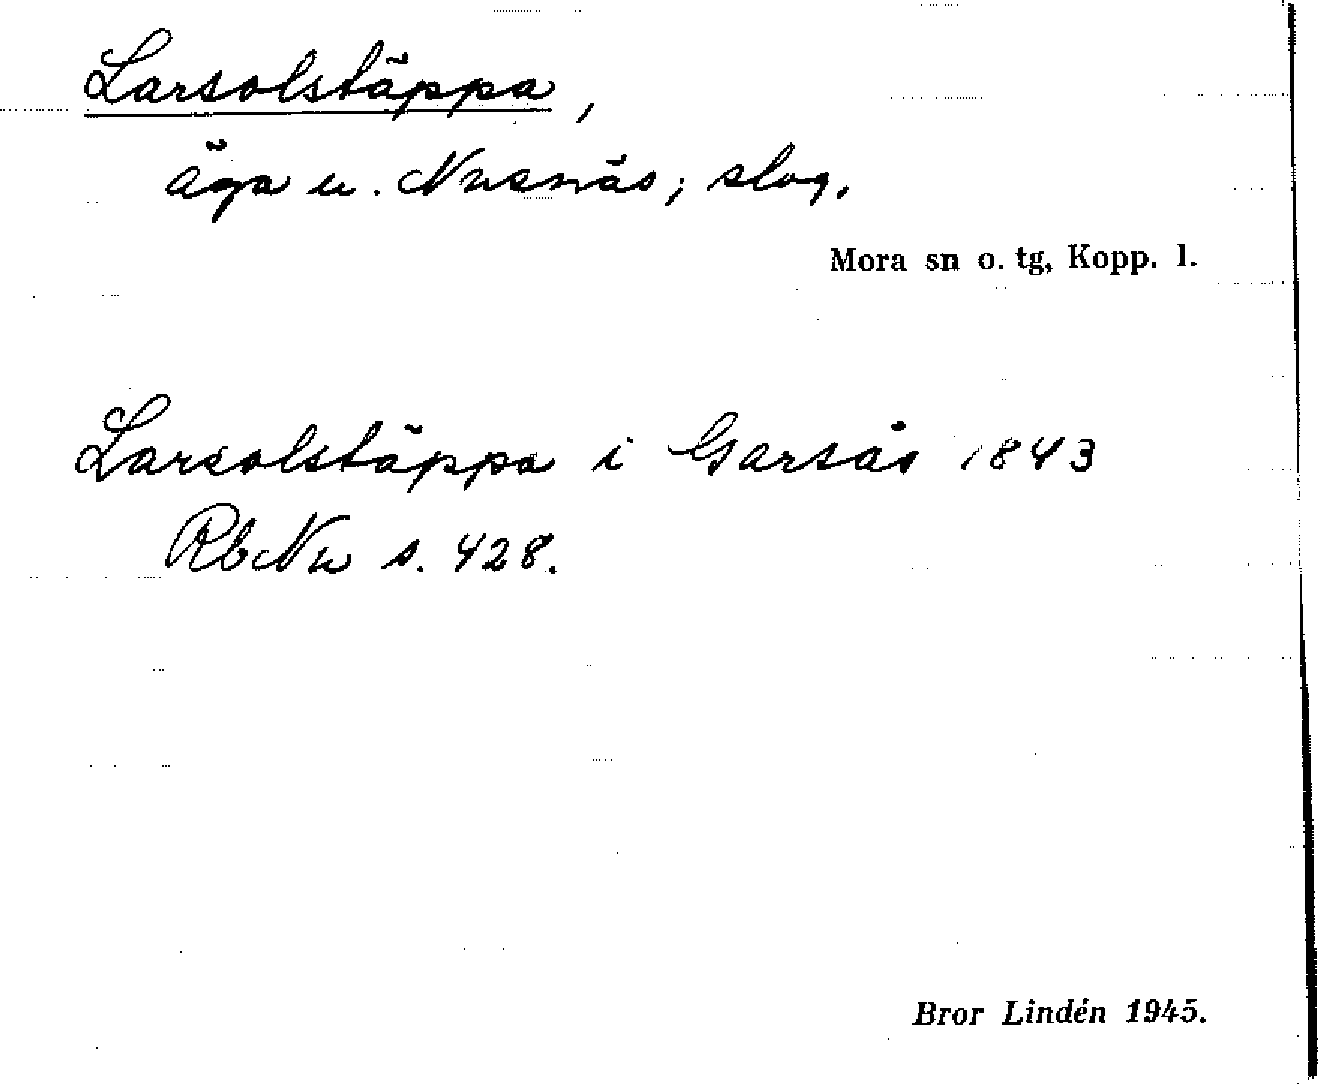 Larsolstäppa,
äga u. Nusnäs; slog.
Mora sn o. tg, Kopp. l.
Larsolstäppa i Garsås 1843
RbNu s. 428.
Bror Lindén 1945.